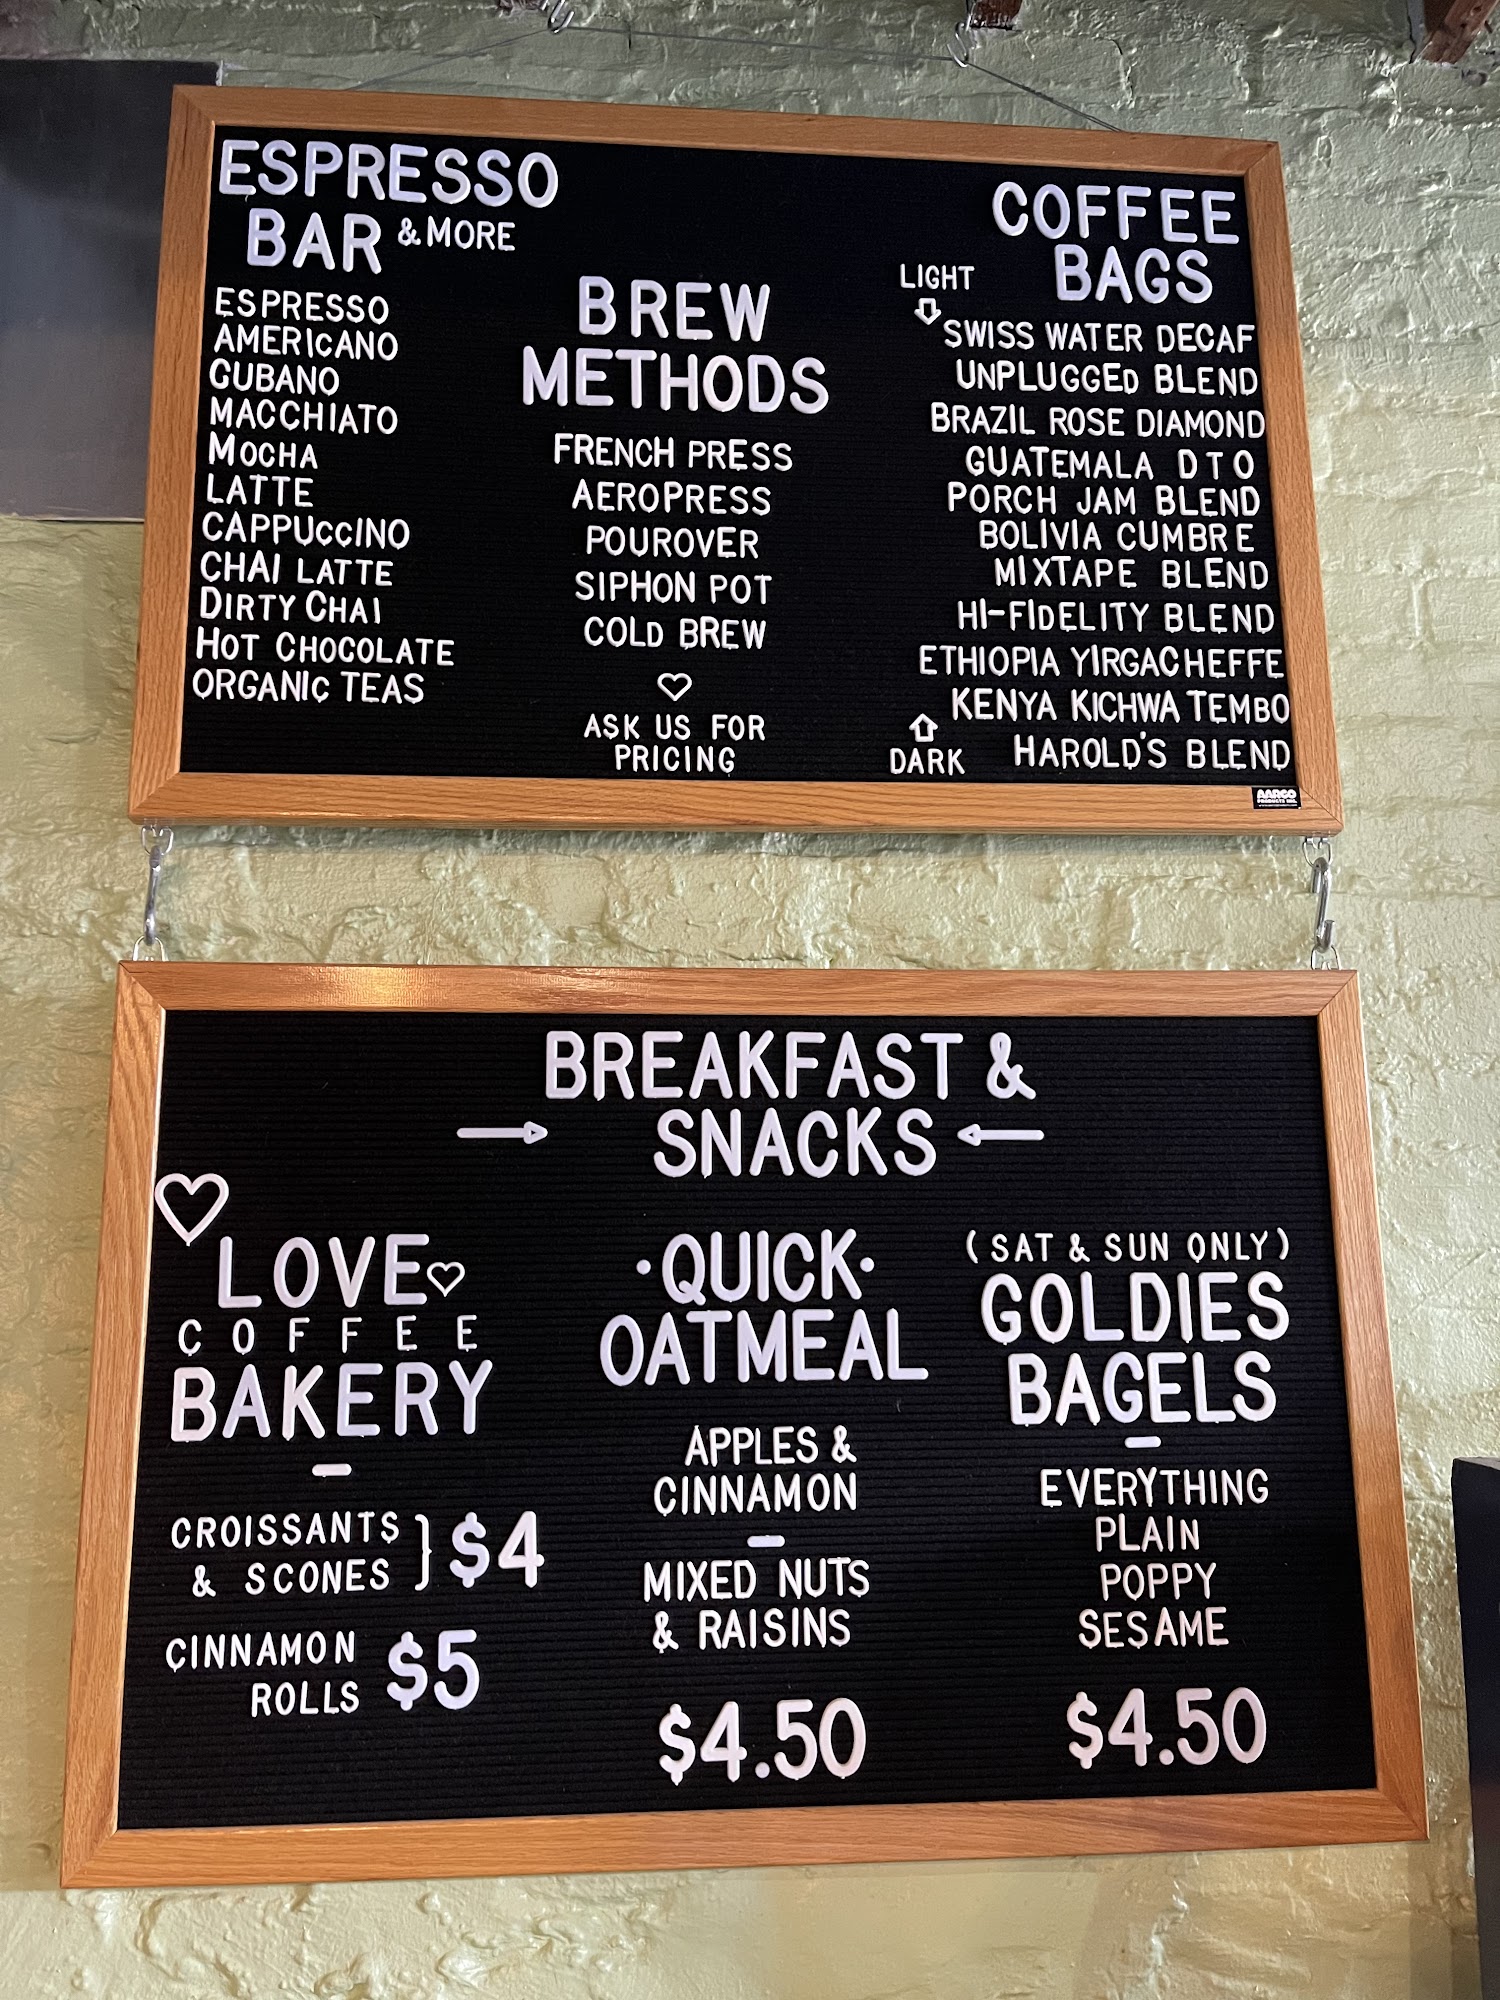 ESPRESSO
BAR & MORE
ESPRESSO
AMERICANO
CUBANO
MACCHIATO
MOCHA
LATTE
CAPPUCCINO
CHAI LATTE
DIRTY CHAI
HOT CHOCOLATE
ORGANIC TEAS
BREW
METHODS
FRENCH PRESS
AEROPRESS
POUROVER
SIPHON POT
COLD BREW
ASK US FOR
PRICING
COFFEE
BAGS
LIGHT
SWISS WATER DECAF
UNPLUGGED BLEND
BRAZIL ROSE DIAMOND
GUATEMALA DTO
PORCH JAM BLEND
BOLIVIA CUMBRE
MIXTAPE BLEND
HI-FIDELITY BLEND
ETHIOPIA YIRGACHEFFE
KENYA KICHWA TEMBO
DARK HAROLD'S BLEND
AARCO
PRODUCTS INC.
BREAKFAST &
SNACKS
LOVE
COFFEE
BAKERY
CROISSANTS
& SCONES } $4
CINNAMON
ROLLS $5
·QUICK·
OATMEAL
APPLES &
CINNAMON
MIXED NUTS
& RAISINS
$4.50
(SAT & SUN ONLY)
GOLDIES
BAGELS
EVERYTHING
PLAIN
POPPY
SESAME
$4.50